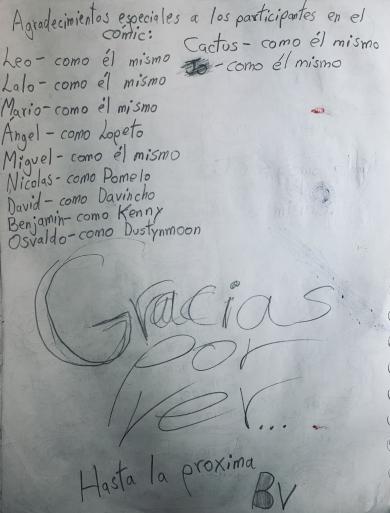 Agradecimientos especiales a los participantes en el
cómic:
Leo - como él mismo
Lalo - como él mismo
Mario - como él mismo
Ángel - como Lopeto
Miguel - como él mismo
Nicolas - como Pomelo
David - como Davincho
Benjamin - como Kenny
Osvaldo - como Dustynmoon
Cactus - como él mismo
- como él mismo
Gracias
por
ver...
Hasta la proxima
BV